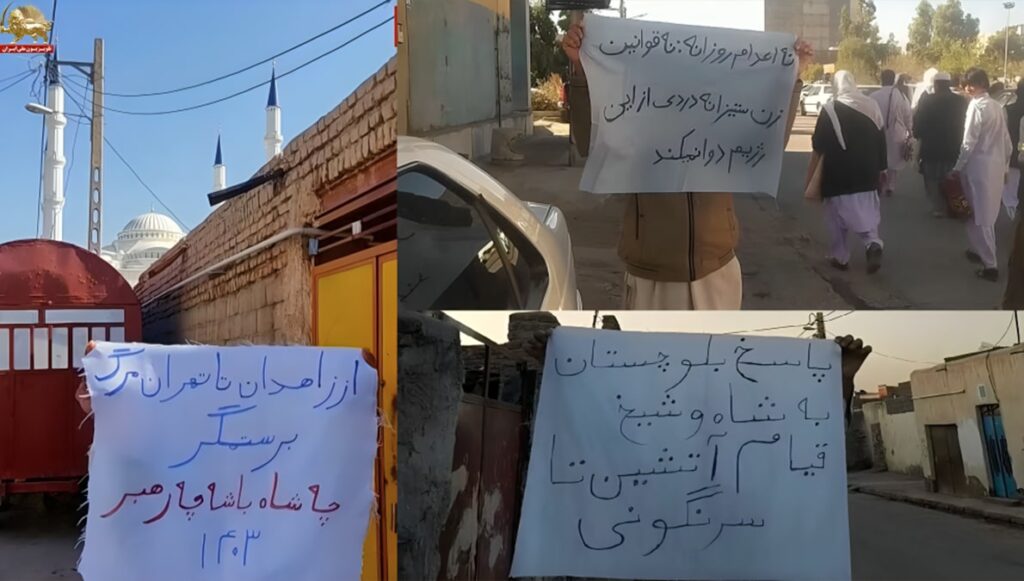 تلویزیون ملی ایران
نه اعدام روزانه: نه قوانین
زن ستیزانه دردی از این
رژیم دوا نمیکند
از زاهدان تا تهران مرگ
بر ستمگر
چه شاه باشه چه رهبر
۱۴۰۳
پاسخ بلوچستان
به شاه و شیخ
قیام آتشین تا
سرنگونی